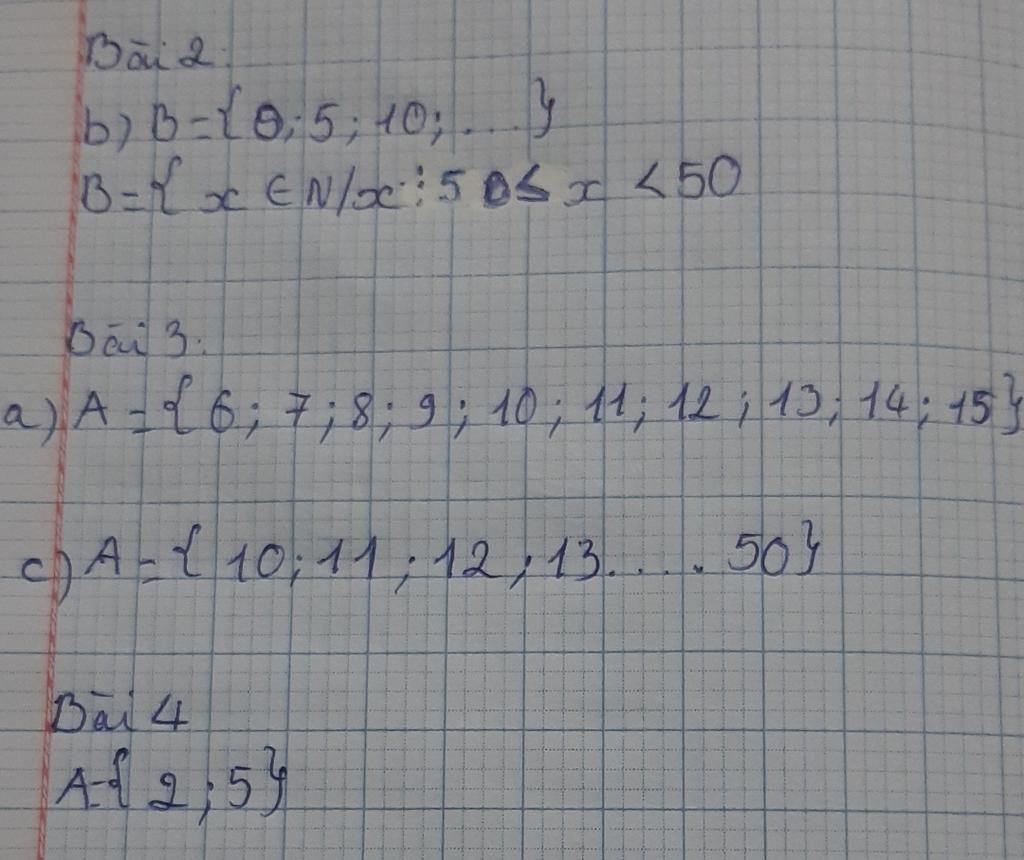 Bài 2.
b) B={0; 5; 10; .... }
B={ x ∈ N/x ⋮ 5 0≤ x < 50
Bài 3.
a) A = { 6; 7; 8; 9; 10; 11; 12; 13; 14; 15}
c) A = { 10; 11; 12; 13..... 50}
Bài 4
A={ 2; 5}